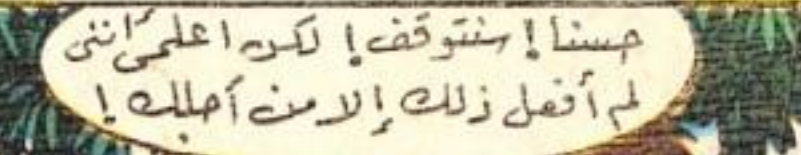 حسنا ! سنتوقف ! لكن اعلمي أنني
لم أفعل ذلك إلا من أجلك !